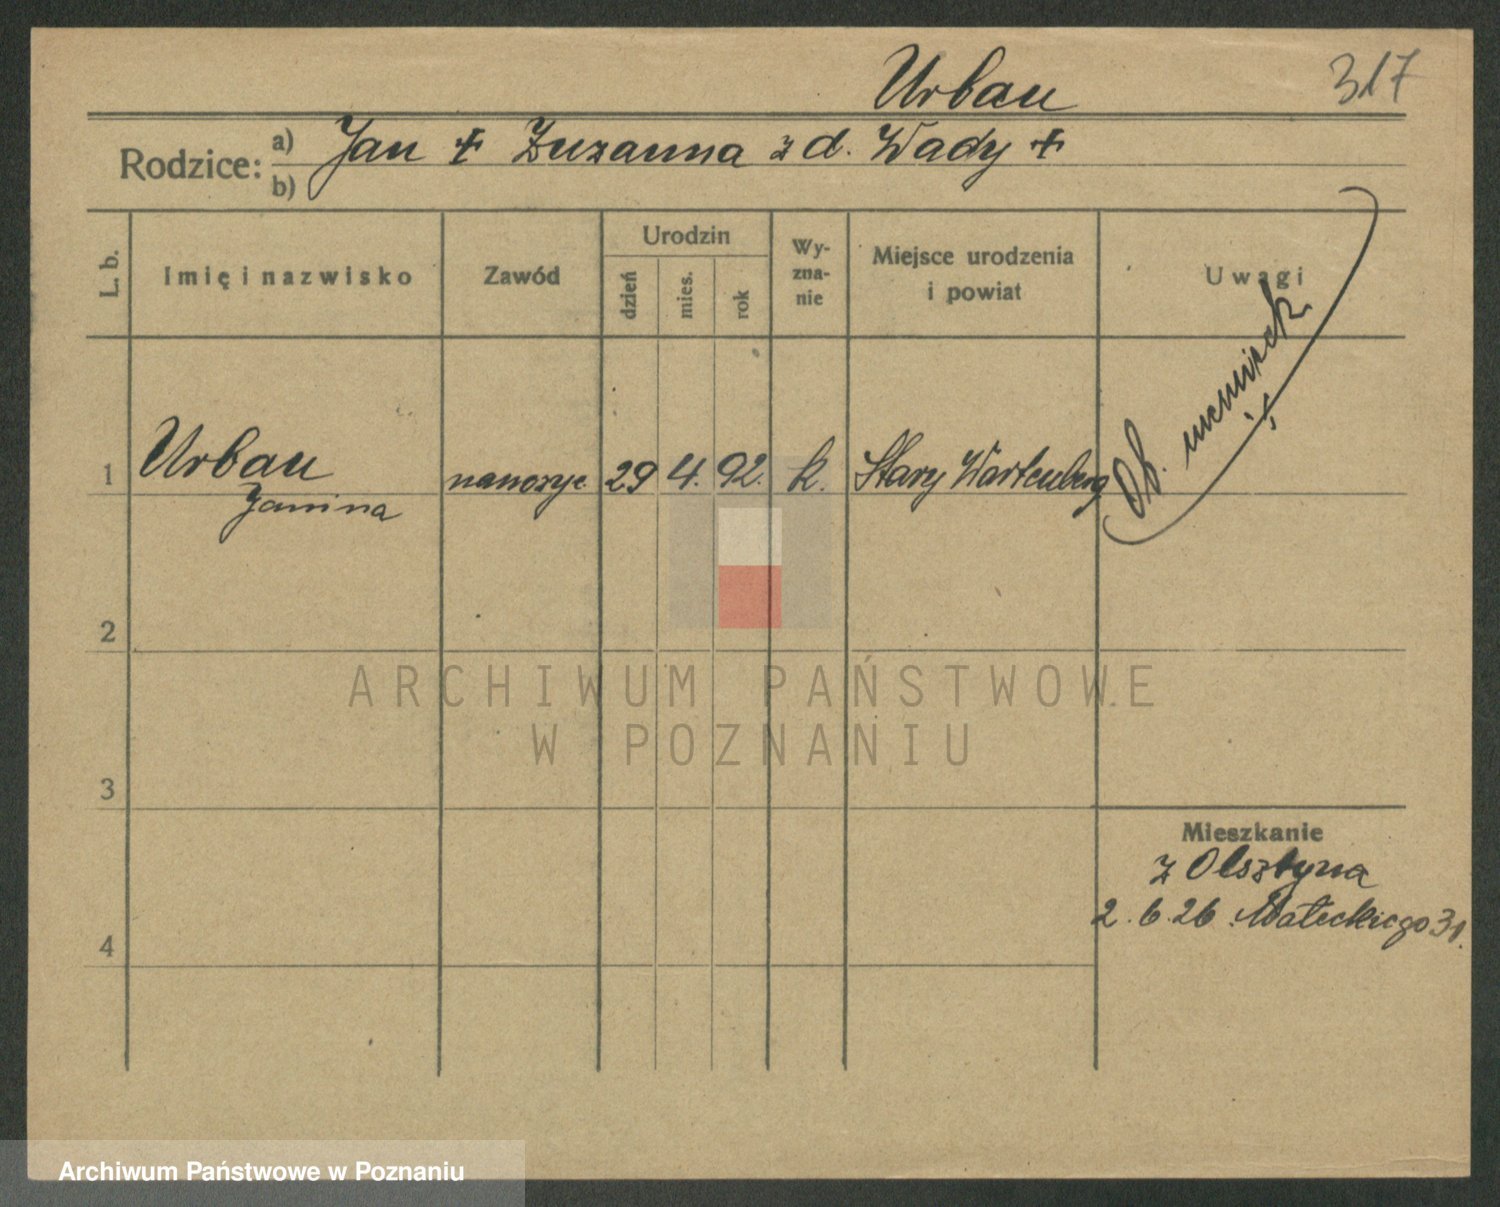 Urban
317
Rodzice: a) Jan + Zuzanna z d. Wady +
b)
L. b.
Imię i nazwisko
Zawód
Urodzin
dzień
mies.
rok
Wy-
zna-
nie
Miejsce urodzenia
i powiat
Uwagi
1 Urban naucyc. 29 4. 92. k. Stary Wartenberg
Janina
Ob. niemieck
2
3
4
Mieszkanie
z Olsztyna
2.6.26 Małeckiego 31.
ARCHIWUM PAŃSTWOWE
W POZNANIU
Archiwum Państwowe w Poznaniu